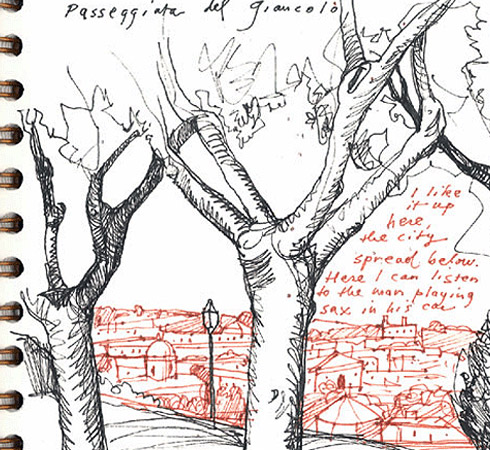 Passeggiata del Giancolo
I like
it up
here,
the city
spread below.
Here I can listen
to the man playing
sax in his car